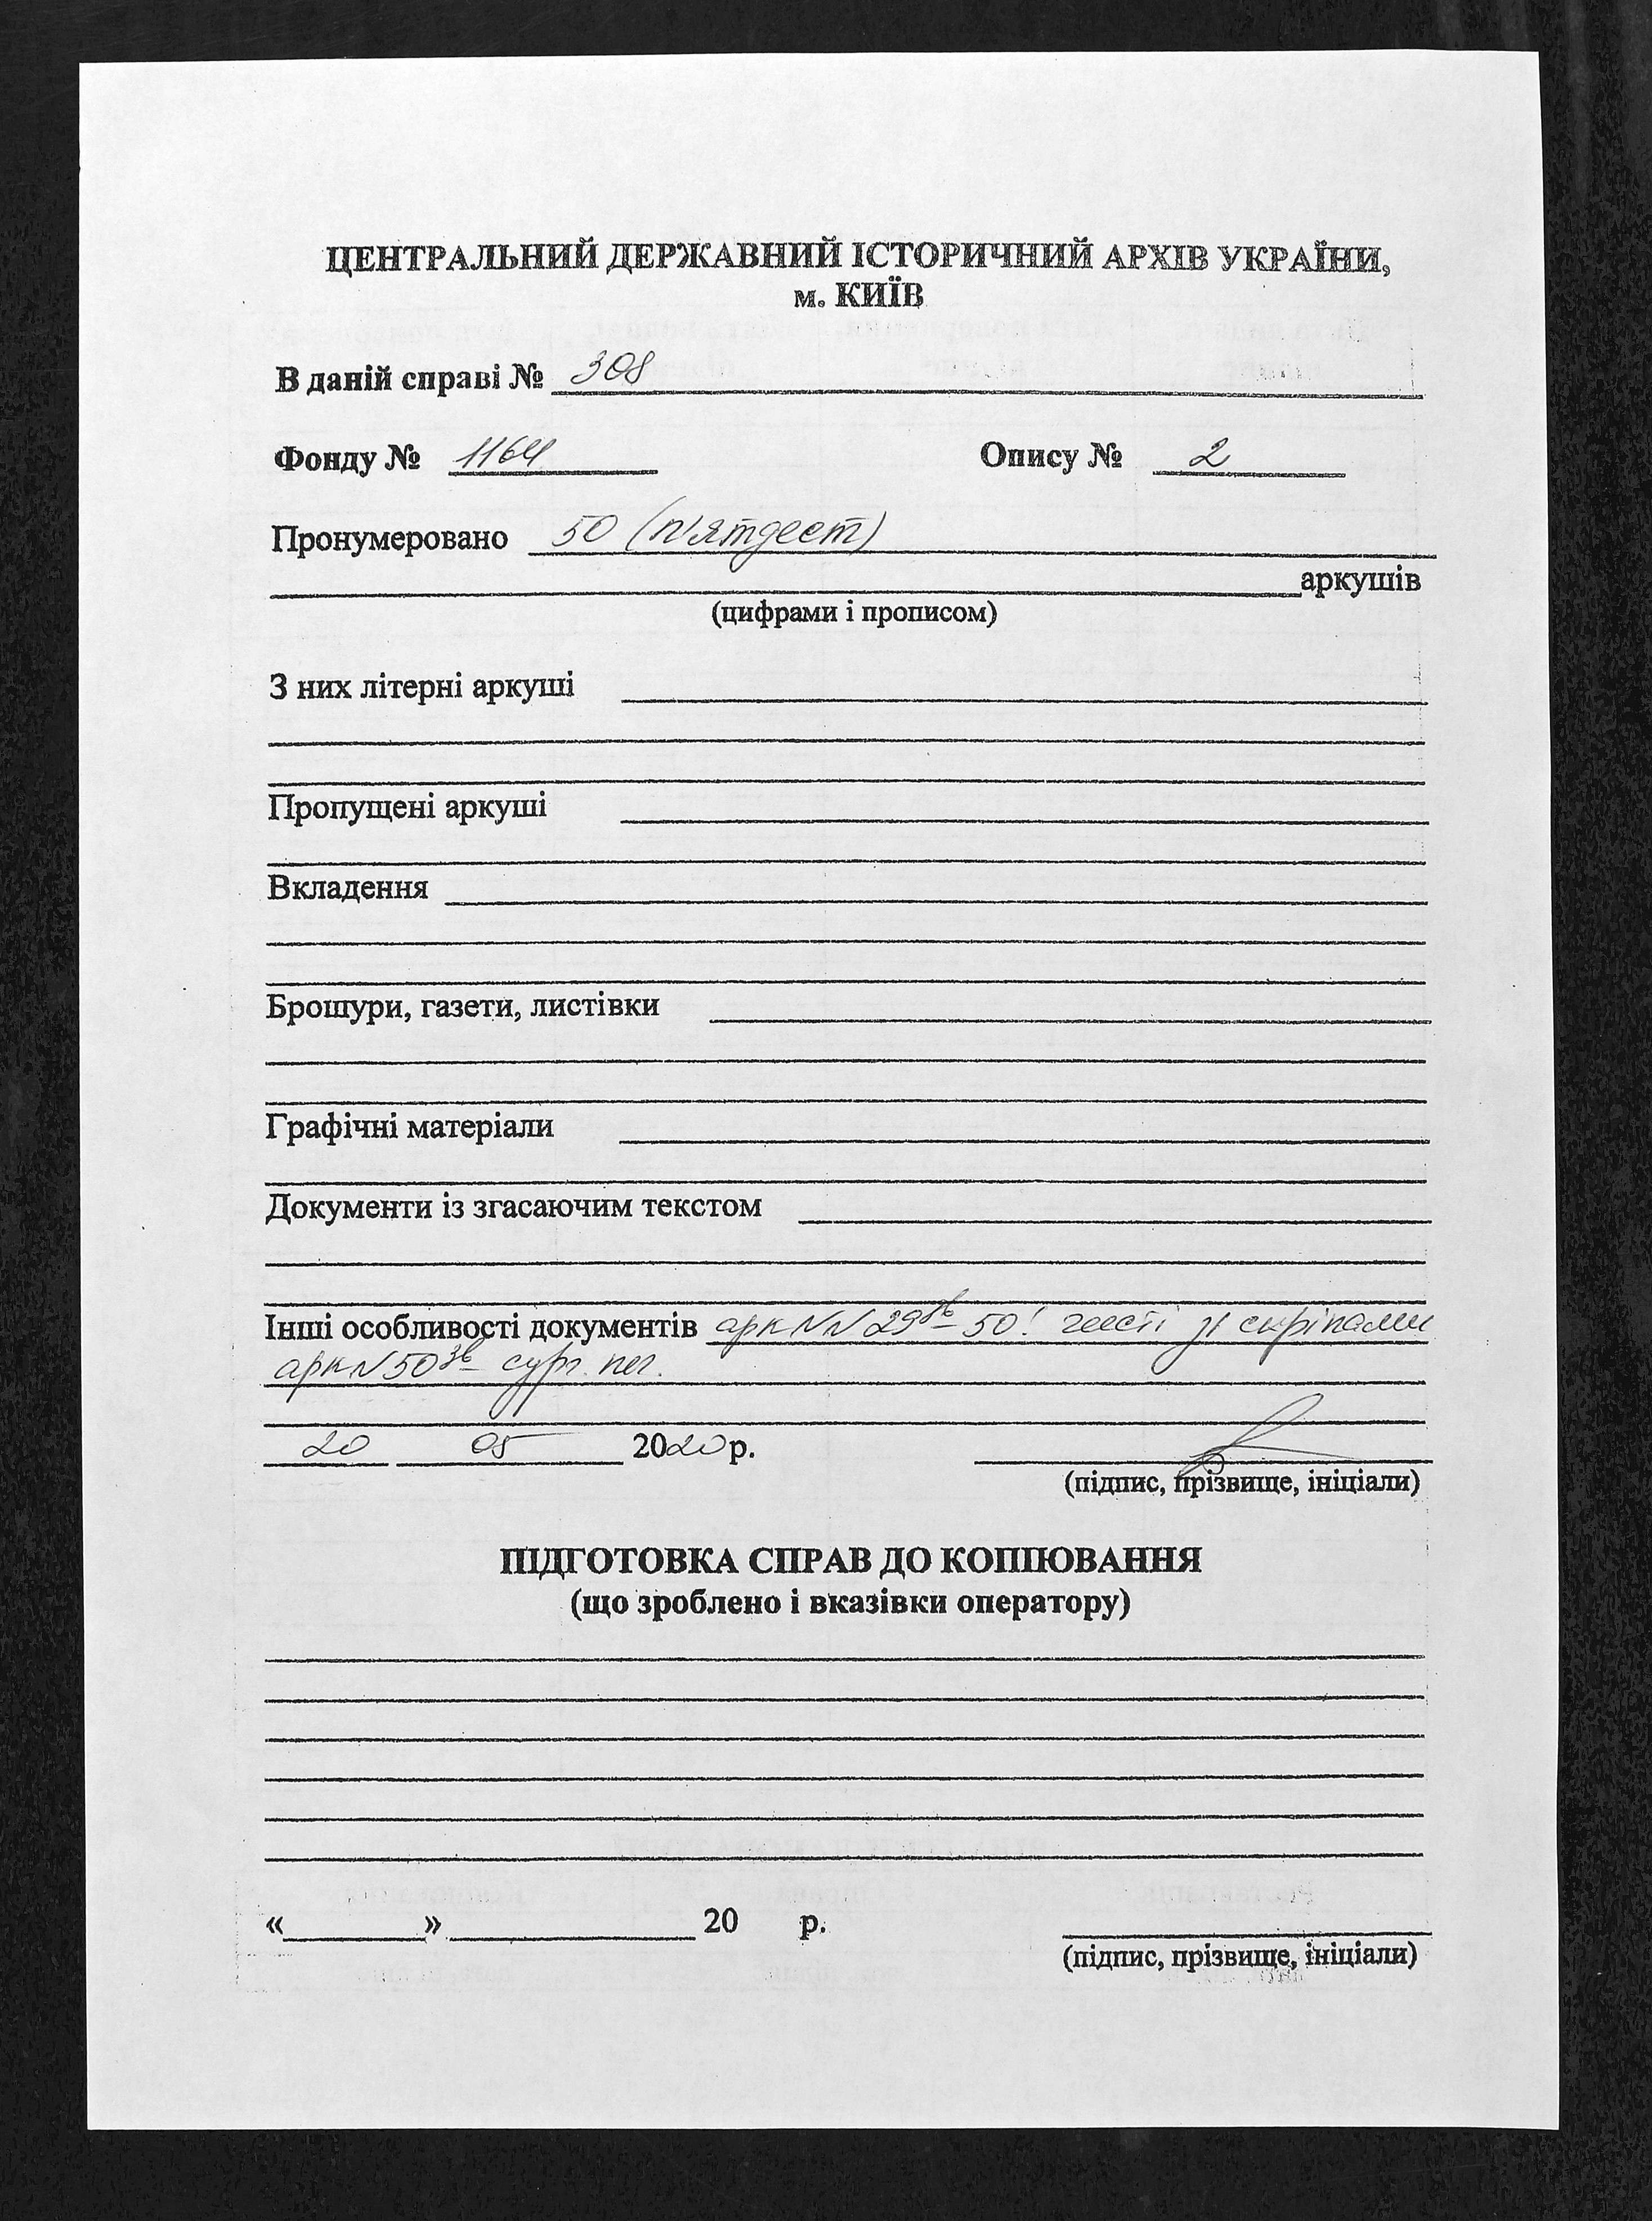 ЦЕНТРАЛЬНИЙ ДЕРЖАВНИЙ ІСТОРИЧНИЙ АРХІВ УКРАЇНИ,
м. КИЇВ
В даній справі № 308
Фонду № 1164 Опису № 2
Пронумеровано 50 (п'ятдест)
аркушів
(цифрами і прописом)
З них літерні аркуші
Пропущені аркуші
Вкладення
Брошури, газети, листівки
Графічні матеріали
Документи із згасаючим текстом
Інші особливості документів арк NN 29зв-50: чисті зі скріпами
арк N 50зв- сург. печ.
20 05 2020 р.
(підпис, прізвище, ініціали)
ПІДГОТОВКА СПРАВ ДО КОПІЮВАННЯ
(що зроблено і вказівки оператору)
«» 20 р.
(підпис, прізвище, ініціали)